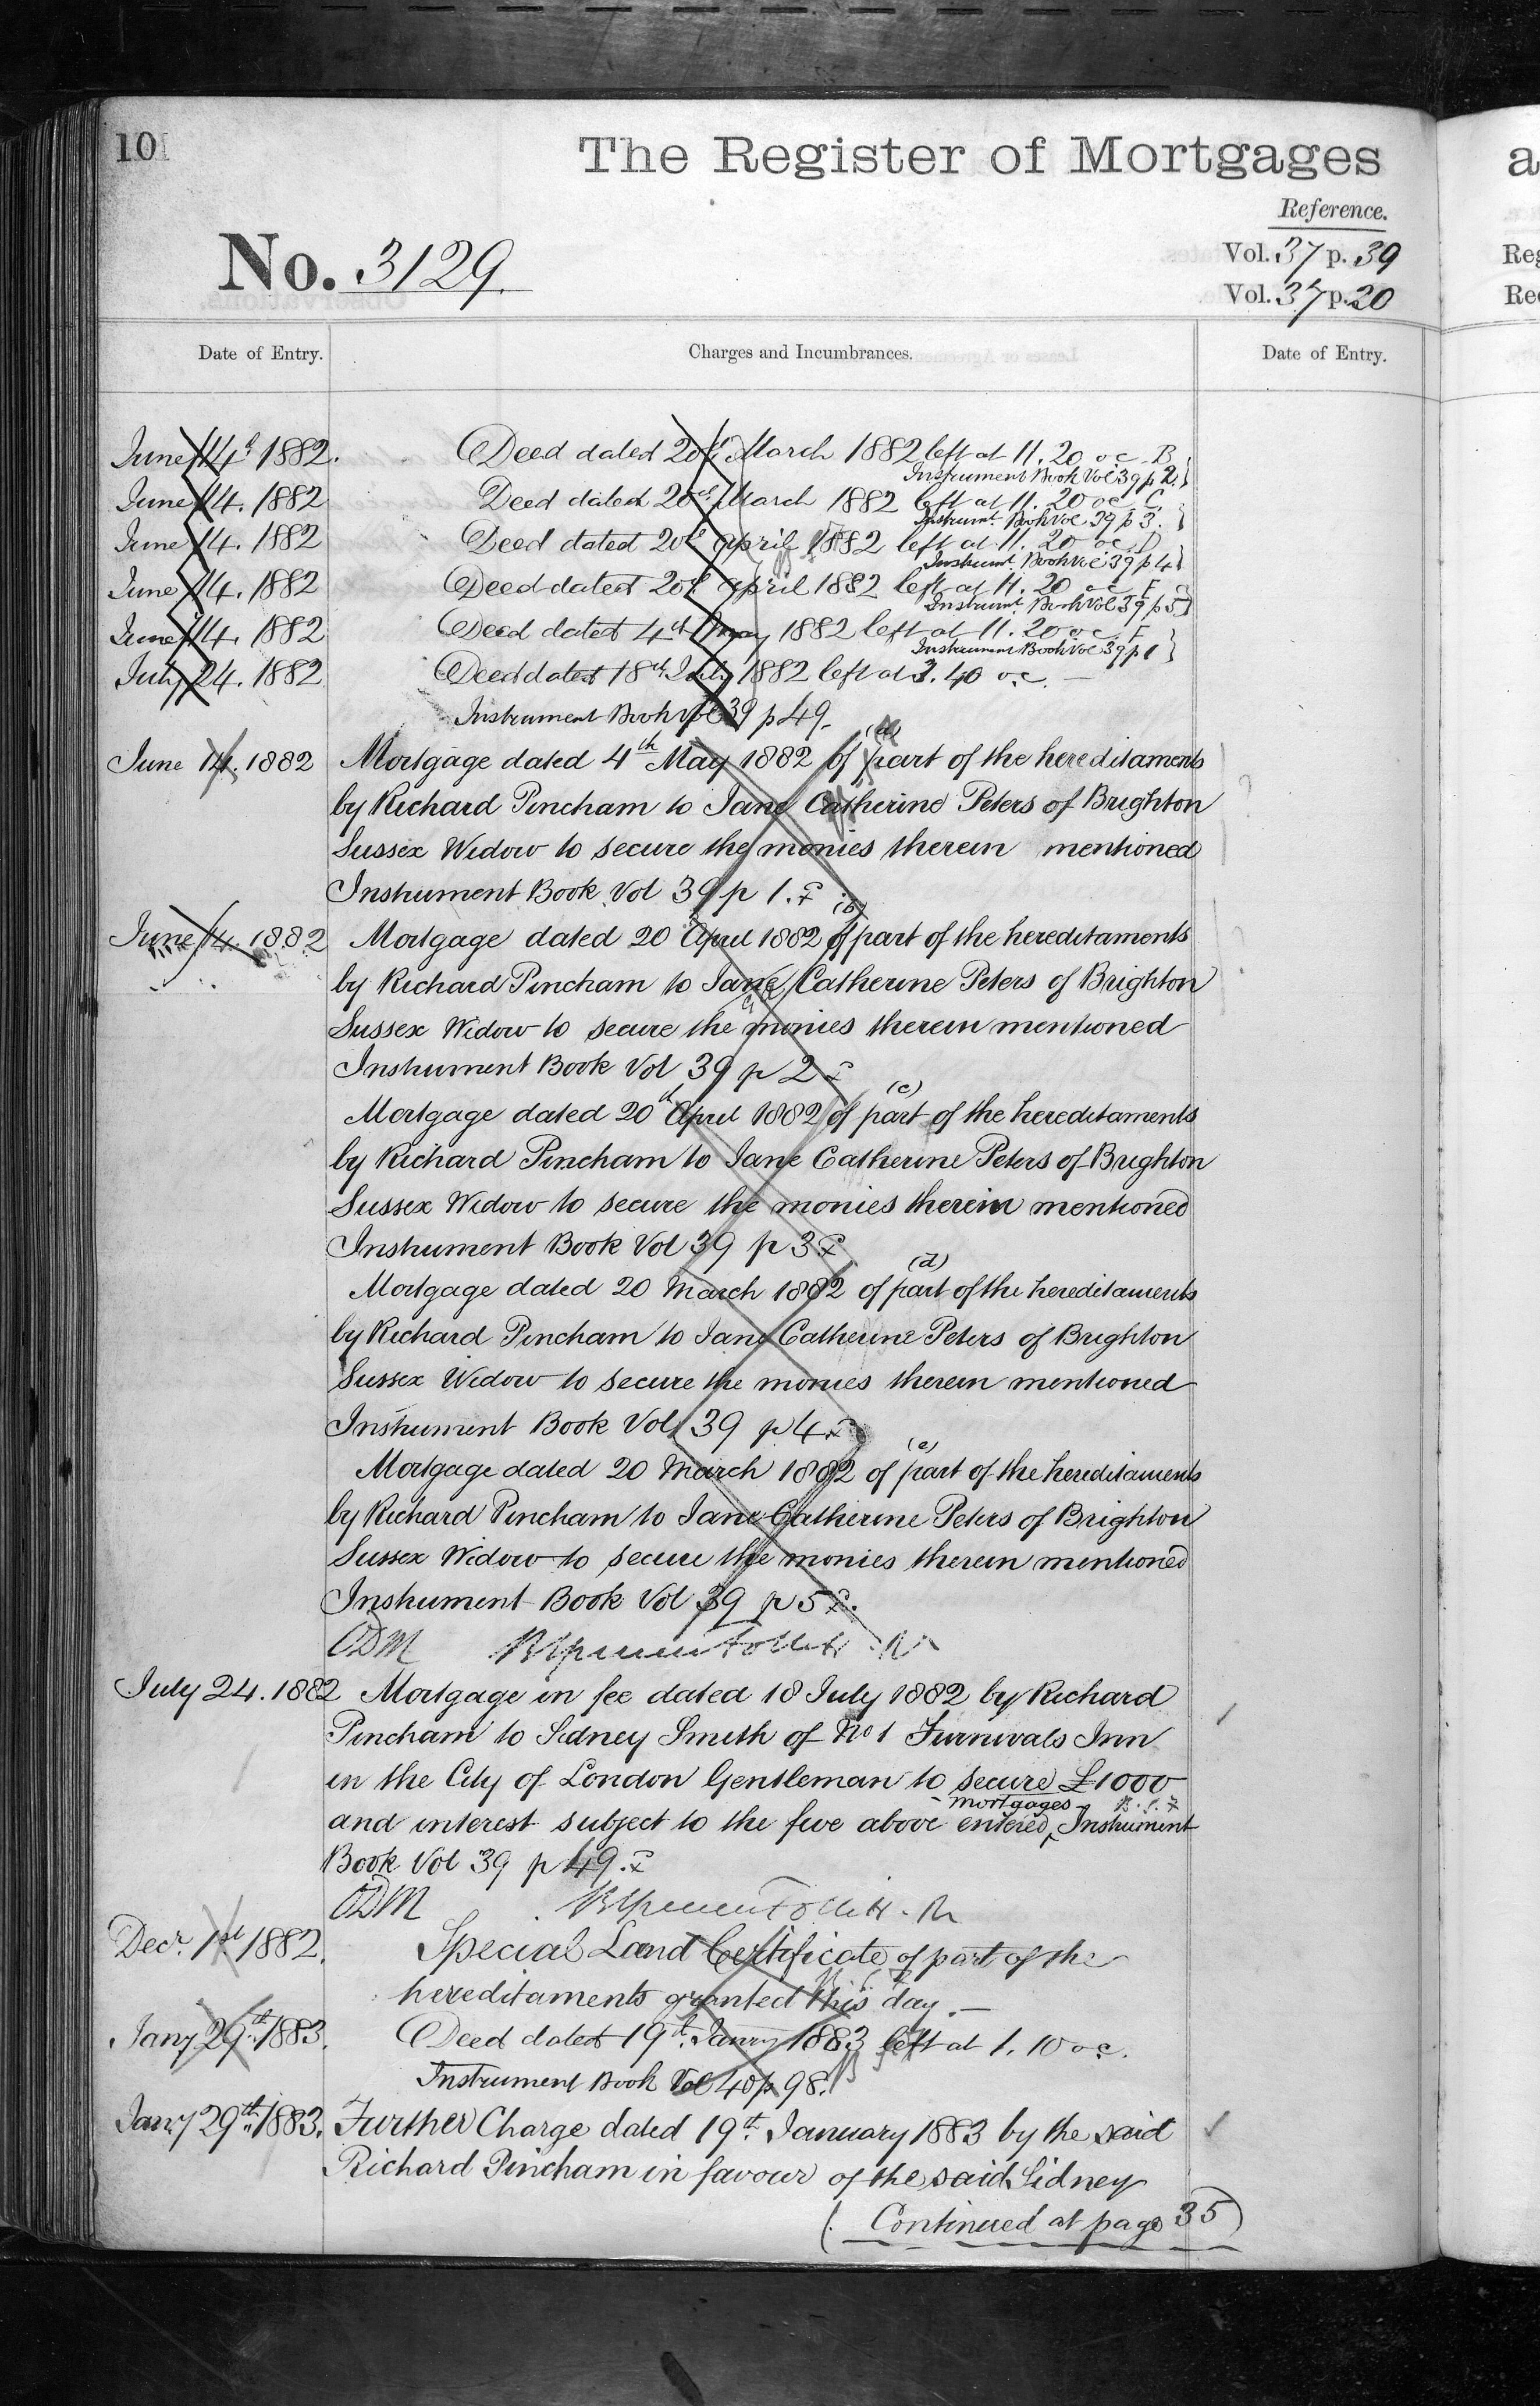 101
The Register of Mortgages
Reference.
No. 3129.
Vol. 37 p. 39
Vol. 37 p. 20
Date of Entry.
Charges and Incumbrances.
Date of Entry.
June 14th 1882. Deed dated 20th March 1882 left at 11.20 oc. B
Instrument Book Vol 39 p 2.
June 14. 1882 Deed dated 20th March 1882 left at 11.20 oc C.
Instrumt. Book Vol 39 p 3.
June 14. 1882 Deed dated 20th April 1882 left at 11.20 oc. D
Instrumt. Book Vol 39 p 4
June 14. 1882 Deed dated 20th April 1882 left at 11.20 oc E
Instrumt. Book Vol 39 p 5
June 14. 1882 Deed dated 4th May 1882 left at 11.20 oc. F
Instrument Book Vol 39 p 1
July 24. 1882 Deed dated 18th July 1882 left at 3.40 o.c. —
Instrument Book Vol 39 p 49.
June 14. 1882 Mortgage dated 4th May 1882 of part of the hereditaments
by Richard Pincham to Jane Catherine Peters of Brighton
Sussex Widow to secure the monies therein mentioned
Instrument Book Vol 39 p 1.
(b)
June 14. 1882 Mortgage dated 20 April 1882 of part of the hereditaments
by Richard Pincham to Jane Catherine Peters of Brighton
Sussex Widow to secure the monies therein mentioned
Instrument Book Vol 39 p 2
(c)
Mortgage dated 20th April 1882 of part of the hereditaments
by Richard Pincham to Jane Catherine Peters of Brighton
Sussex Widow to secure the monies therein mentioned
Instrument Book Vol 39 p 3
(d)
Mortgage dated 20 March 1882 of part of the hereditaments
by Richard Pincham to Jane Catherine Peters of Brighton
Sussex Widow to secure the monies therein mentioned
Instrument Book Vol 39 p 4
(e)
Mortgage dated 20 March 1882 of part of the hereditaments
by Richard Pincham to Jane Catherine Peters of Brighton
Sussex Widow to secure the monies therein mentioned
Instrument Book Vol 39 p 5
ODM
July 24. 1882 Mortgage in fee dated 18 July 1882 by Richard
Pincham to Sidney Smith of No 1 Furnivals Inn
in the City of London Gentleman to secure £1000
mortgages
and interest subject to the five above entered, Instrument
Book Vol 39 p 49.
ODM
Decr. 1st 1882. Special Land Certificate of part of the
hereditaments granted this day. —
Jany 29th. 1883. Deed dated 19th. Janry 1883 left at 1.10 oc.
Instrument Book Vol 40 p 98.
Jany 29th. 1883. Further Charge dated 19th. January 1883 by the said
Richard Pincham in favour of the said Sidney
(Continued at page 35)